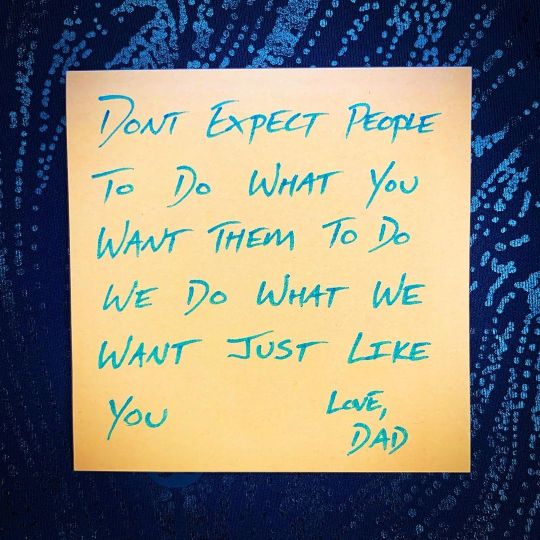 DONT EXPECT PEOPLE
TO DO WHAT YOU
WANT THEM TO DO
WE DO WHAT WE
WANT JUST LIKE
YOU
LOVE,
DAD